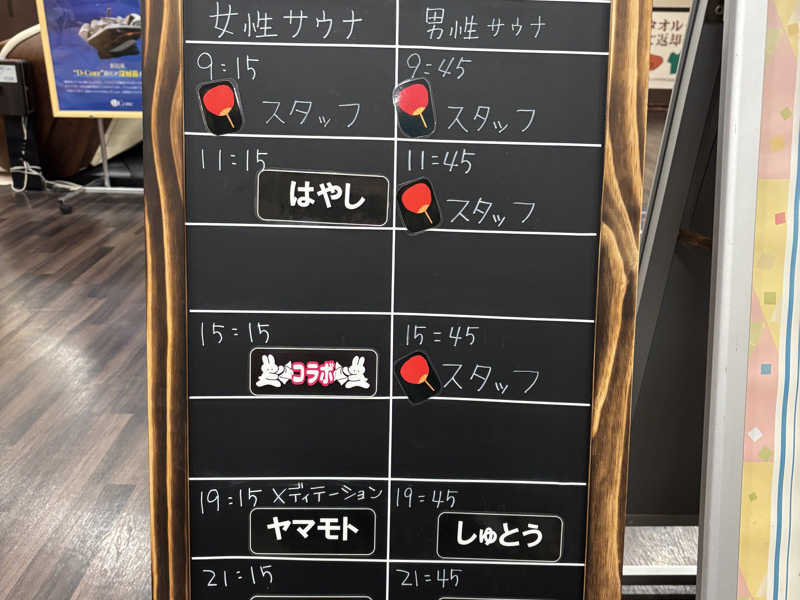 女性サウナ 男性サウナ
9:15 9:45
スタッフ スタッフ
11:15 11:45
はやし スタッフ
15:15 15:45
コラボ スタッフ
19:15 メディテーション 19:45
ヤマモト しゅとう
21:15 21:45
タオル
返却